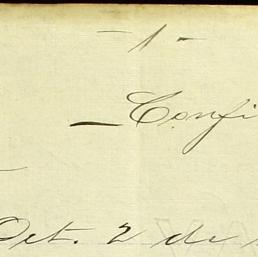 - 1 -
— Confi
Oct. 2 de